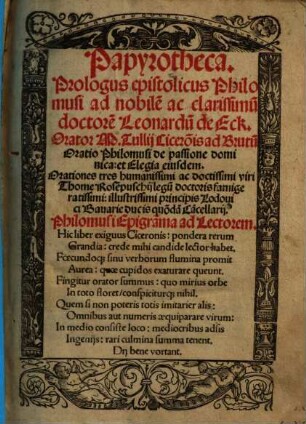 Papyrotheca.
Prologus epistolicus Philo
musi ad nobilẽ ac clarissimũ
doctorẽ Leonardũ de Eck.
Orator M. Tullij Cicerõis ad Brutũ
Oratio Philomusi de passione domi
nica: et Elegia eiusdem.
Orationes tres humanissimi ac doctissimi viri
Thome Rosẽpuschij legũ doctoris famige
ratissimi: illustrissimi principis Lodoui
ci Bauarie ducis quõdã Cãcellarij.
Philomusi Epigrãma ad Lectorem.
Hic liber exiguus Ciceronis: pondera rerum
Grandia: crede mihi candide lector habet.
Fœcundoqꝫ sinu verborum flumina promit
Aurea: quæ cupidos exaturare queunt.
Fingitur orator summus: quo mirius orbe
In toto floret/conspiciturqꝫ nihil.
Quem si non poteris totis imitarier alis:
Omnibus aut numeris æquiparare virum:
In medio consiste loco: mediocribus adsis
Ingenijs: rari culmina summa tenent.
Dij bene vortant.